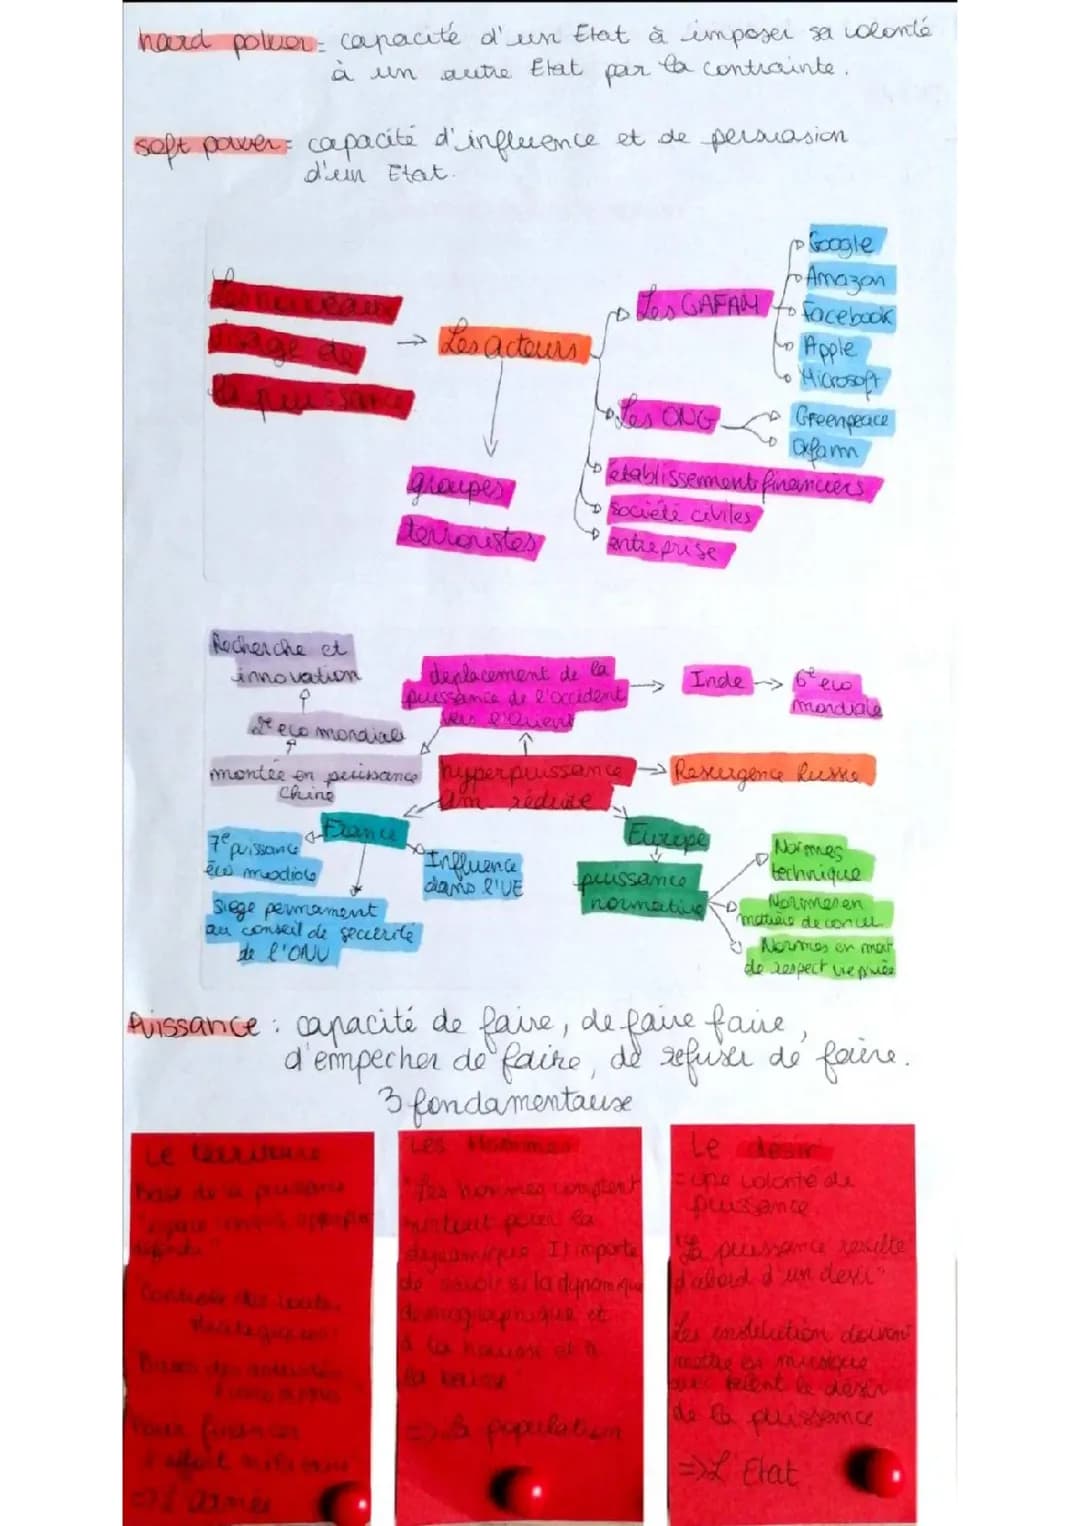 hard power = capacité d'un Etat à imposer sa volonté
à un autre Etat par la contrainte.
soft power = capacité d'influence et de persuasion
d'un Etat.
Les nouveaux
visage de
la puissance
Les acteurs
groupes
terroristes
Les GAFAM
Google
Amazon
Facebook
Apple
Microsoft
Les ONG
Greenpeace
Oxfam
établissement financiers
société civiles
entreprise
Recherche et
innovation
2e eco mondiale
montée en puissance
Chine
déplacement de la
puissance de l'occident
vers l'Orient
Inde
6e eco
mondiale
hyperpuissance
am réduite
Resurgence Russie
France
7e puissance
éco mondiale
Influence
dans l'UE
Siège permanent
au conseil de sécurité
de l'ONU
Europe
puissance
normative
Normes
technique
Normes en
matière de
Normes en mat
de respect vie privée
Puissance : capacité de faire, de faire faire,
d'empecher de faire, de refuser de faire.
3 fondamentaux
Le territoire
Base de la puissance
"espace
Contrôle des
stratégiques
Bases des
Pour financer
l'effort militaire
Les Hommes
"Les hommes comptent
surtout pour la
dynamique. Il importe
de savoir si la dynamique
démographique est
à la hausse et à
la baisse"
=> la population
Le désir
= une volonté de
puissance
"La puissance résulte
d'abord d'un désir"
Les institution doivent
mettre en musique
avec talent le désir
de la puissance
=> L'Etat